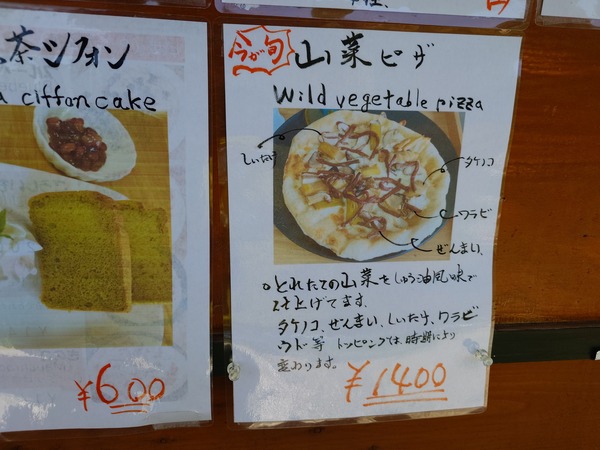 茶シフォン
ciffon cake
¥600
今が旬
山菜ピザ
Wild vegetable pizza
しいたけ
タケノコ
ワラビ
ぜんまい
○とれたての山菜をしょう油風味で
仕上げてます。
タケノコ、ぜんまい、しいたけ、ワラビ
ウド等 トッピングは、時期により
変わります。
¥1400